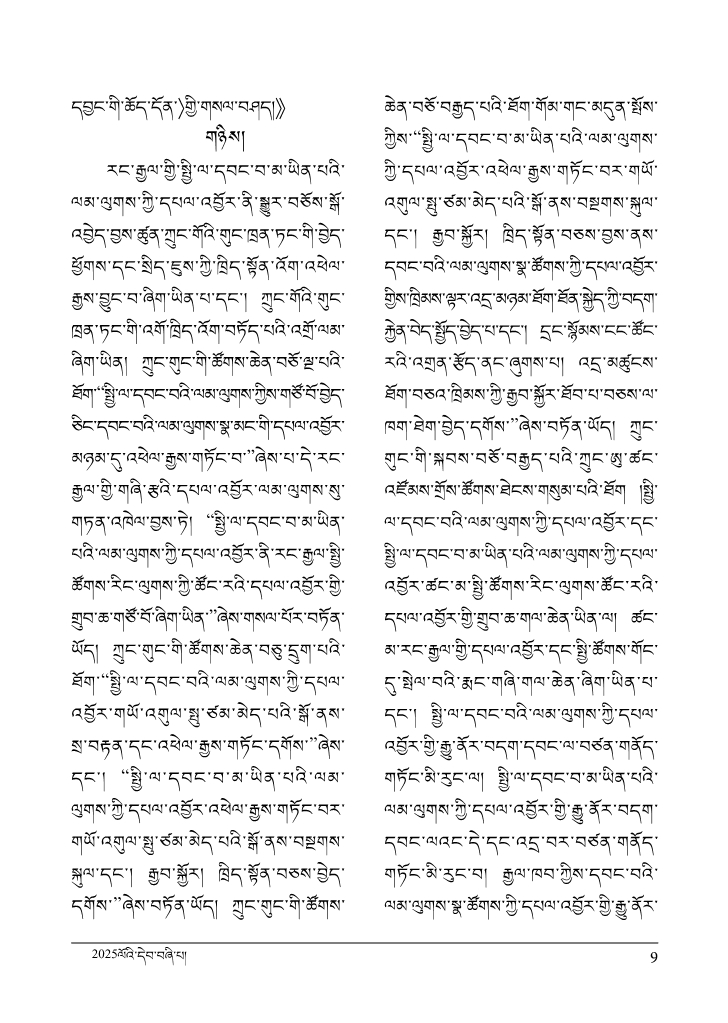 དབྱང་གི་ཚོད་དོན་〉གྱི་གསལ་བཤད།》
གཉིས།
རང་རྒྱལ་གྱི་སྤྱི་ལ་དབང་བ་མ་ཡིན་པའི་
ལམ་ལུགས་ཀྱི་དཔལ་འབྱོར་ནི་སྒྱུར་བཅོས་སྒོ་
འབྱེད་བྱས་ཚུན་ཀྲུང་གོའི་གུང་ཁྲན་ཏང་གི་བྱེད་
ཕྱོགས་དང་སྲིད་ཇུས་ཀྱི་ཁྲིད་སྟོན་འོག་འཕེལ་
རྒྱས་བྱུང་བ་ཞིག་ཡིན་པ་དང་། ཀྲུང་གོའི་གུང་
ཁྲན་ཏང་གི་འགོ་ཁྲིད་འོག་བཏོད་པའི་འགྲོ་ལམ་
ཞིག་ཡིན། ཀྲུང་གུང་གི་ཚོགས་ཆེན་བཅོ་ལྔ་པའི་
ཐོག་“སྤྱི་ལ་དབང་བའི་ལམ་ལུགས་ཀྱིས་གཙོ་བོ་བྱེད་
ཅིང་དབང་བའི་ལམ་ལུགས་སྣ་མང་གི་དཔལ་འབྱོར་
མཉམ་དུ་འཕེལ་རྒྱས་གཏོང་བ་”ཞེས་པ་དེ་རང་
རྒྱལ་གྱི་གཞི་རྩའི་དཔལ་འབྱོར་ལམ་ལུགས་སུ་
གཏན་འཁེལ་བྱས་ཏེ། “སྤྱི་ལ་དབང་བ་མ་ཡིན་
པའི་ལམ་ལུགས་ཀྱི་དཔལ་འབྱོར་ནི་རང་རྒྱལ་སྤྱི་
ཚོགས་རིང་ལུགས་ཀྱི་ཚོང་རའི་དཔལ་འབྱོར་གྱི་
གྲུབ་ཆ་གཙོ་བོ་ཞིག་ཡིན་”ཞེས་གསལ་པོར་བཏོན་
ཡོད། ཀྲུང་གུང་གི་ཚོགས་ཆེན་བཅུ་དྲུག་པའི་
ཐོག་“སྤྱི་ལ་དབང་བའི་ལམ་ལུགས་ཀྱི་དཔལ་
འབྱོར་གཡོ་འགུལ་སྤུ་ཙམ་མེད་པའི་སྒོ་ནས་
སྲ་བརྟན་དང་འཕེལ་རྒྱས་གཏོང་དགོས་”ཞེས་
དང་། “སྤྱི་ལ་དབང་བ་མ་ཡིན་པའི་ལམ་
ལུགས་ཀྱི་དཔལ་འབྱོར་འཕེལ་རྒྱས་གཏོང་བར་
གཡོ་འགུལ་སྤུ་ཙམ་མེད་པའི་སྒོ་ནས་བསྔགས་
སྐུལ་དང་། རྒྱབ་སྐྱོར། ཁྲིད་སྟོན་བཅས་བྱེད་
དགོས་”ཞེས་བཏོན་ཡོད། ཀྲུང་གུང་གི་ཚོགས་
ཆེན་བཅོ་བརྒྱད་པའི་ཐོག་གོམ་གང་མདུན་སྤོས་
ཀྱིས་“སྤྱི་ལ་དབང་བ་མ་ཡིན་པའི་ལམ་ལུགས་
ཀྱི་དཔལ་འབྱོར་འཕེལ་རྒྱས་གཏོང་བར་གཡོ་
འགུལ་སྤུ་ཙམ་མེད་པའི་སྒོ་ནས་བསྔགས་སྐུལ་
དང་། རྒྱབ་སྐྱོར། ཁྲིད་སྟོན་བཅས་བྱས་ནས་
དབང་བའི་ལམ་ལུགས་སྣ་ཚོགས་ཀྱི་དཔལ་འབྱོར་
གྱིས་ཁྲིམས་ལྟར་འདྲ་མཉམ་ཐོག་ཐོན་སྐྱེད་ཀྱི་བདག་
རྐྱེན་བེད་སྤྱོད་བྱེད་པ་དང་། དྲང་སྙོམས་ངང་ཚོང་
རའི་འགྲན་རྩོད་ནང་ཞུགས་པ། འདྲ་མཚུངས་
ཐོག་བཅའ་ཁྲིམས་ཀྱི་རྒྱབ་སྐྱོར་ཐོབ་པ་བཅས་ལ་
ཁག་ཐེག་བྱེད་དགོས་”ཞེས་བཏོན་ཡོད། ཀྲུང་
གུང་གི་སྐབས་བཅོ་བརྒྱད་པའི་ཀྲུང་ཨུ་ཚང་
འཛོམས་གྲོས་ཚོགས་ཐེངས་གསུམ་པའི་ཐོག །སྤྱི་
ལ་དབང་བའི་ལམ་ལུགས་ཀྱི་དཔལ་འབྱོར་དང་
སྤྱི་ལ་དབང་བ་མ་ཡིན་པའི་ལམ་ལུགས་ཀྱི་དཔལ་
འབྱོར་ཚང་མ་སྤྱི་ཚོགས་རིང་ལུགས་ཚོང་རའི་
དཔལ་འབྱོར་གྱི་གྲུབ་ཆ་གལ་ཆེན་ཡིན་ལ། ཚང་
མ་རང་རྒྱལ་གྱི་དཔལ་འབྱོར་དང་སྤྱི་ཚོགས་གོང་
དུ་སྤེལ་བའི་རྨང་གཞི་གལ་ཆེན་ཞིག་ཡིན་པ་
དང་། སྤྱི་ལ་དབང་བའི་ལམ་ལུགས་ཀྱི་དཔལ་
འབྱོར་གྱི་རྒྱུ་ནོར་བདག་དབང་ལ་བཙན་གནོད་
གཏོང་མི་རུང་ལ། སྤྱི་ལ་དབང་བ་མ་ཡིན་པའི་
ལམ་ལུགས་ཀྱི་དཔལ་འབྱོར་གྱི་རྒྱུ་ནོར་བདག་
དབང་ལའང་དེ་དང་འདྲ་བར་བཙན་གནོད་
གཏོང་མི་རུང་བ། རྒྱལ་ཁབ་ཀྱིས་དབང་བའི་
ལམ་ལུགས་སྣ་ཚོགས་ཀྱི་དཔལ་འབྱོར་གྱི་རྒྱུ་ནོར་
2025ལོའི་དེབ་བཞི་པ།
9